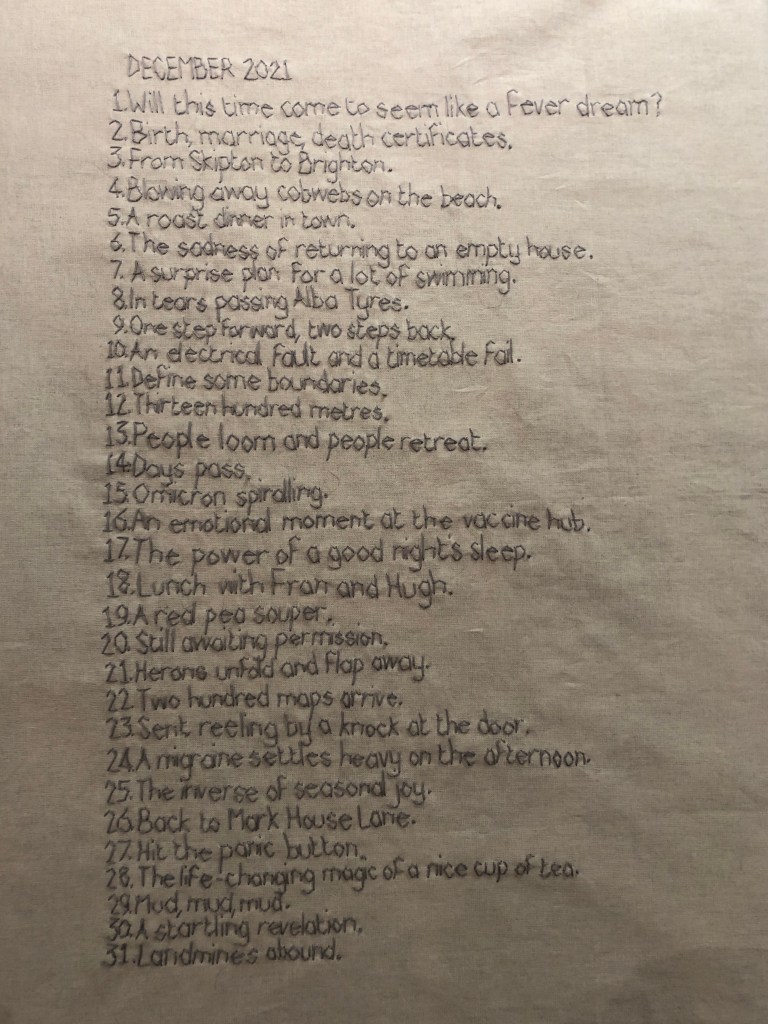 DECEMBER 2021
1. Will this time come to seem like a fever dream?
2. Birth, marriage, death certificates.
3. From Skipton to Brighton.
4. Blowing away cobwebs on the beach.
5. A roast dinner in town.
6. The sadness of returning to an empty house.
7. A surprise plan for a lot of swimming.
8. In tears passing Alba Tyres.
9. One step forward, two steps back.
10. An electrical fault and a timetable fail.
11. Define some boundaries.
12. Thirteen hundred metres.
13. People loom and people retreat.
14. Days pass.
15. Omicron spiralling.
16. An emotional moment at the vaccine hub.
17. The power of a good night's sleep.
18. Lunch with Fran and Hugh.
19. A red pea souper.
20. Still awaiting permission.
21. Herons unfold and flap away.
22. Two hundred maps arrive.
23. Sent reeling by a knock at the door.
24. A migraine settles heavy on the afternoon.
25. The inverse of seasonal joy.
26. Back to Mark House Lane.
27. Hit the panic button.
28. The life-changing magic of a nice cup of tea.
29. Mud, mud, mud.
30. A startling revelation.
31. Landmines abound.